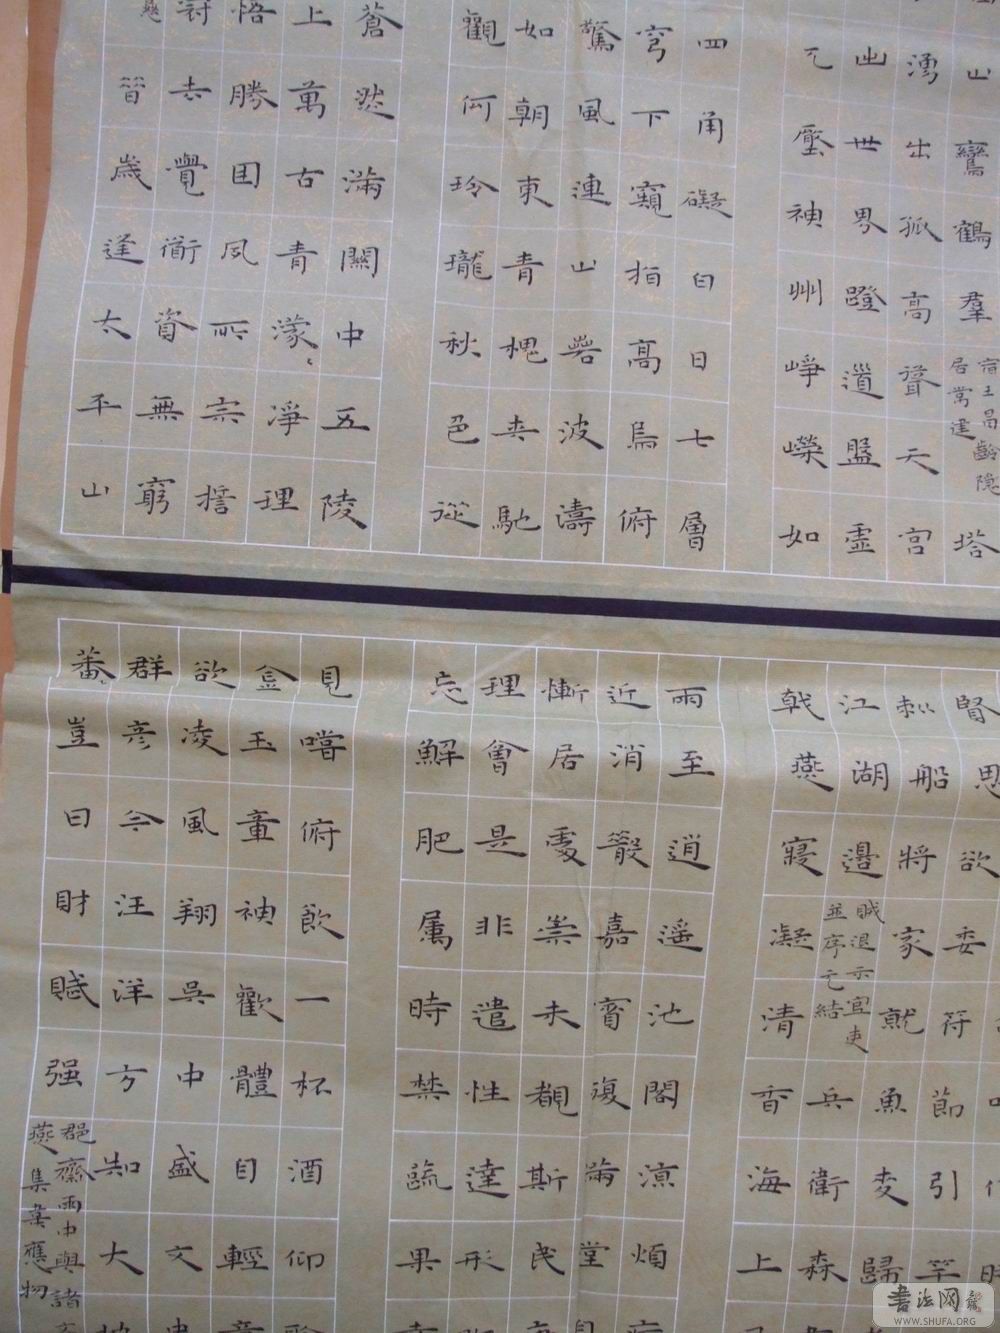 山鸞鶴羣
宿王昌齡隱
居常建
塔
湧出孤高聳天宮
出世界蹬道盤虛
兀壓神州崢嶸如
四角礙白日七層
穹下窺指高鳥俯
驚風連山若波濤
如朝東青槐夾馳
觀何玲瓏秋色從
蒼然滿關中五陵
上萬古青濛〻淨理
悟勝因夙所宗誓
去覺衜資無窮
昔歲逢太平山
賢思欲委符節引竿
刺船將家就魚麥歸
江湖邊
賊退示官吏
並序元結
兵衛森
戟燕寢凝清香海上
雨至逍遙池閣涼煩
近消散嘉賓復滿堂
慚居處崇未覩斯民
理會是非遣性達形
忘鮮肥屬時禁蔬果
見嘗俯飲一杯酒仰
金玉章神歡體自輕
欲凌風翔吳中盛文
群彥今汪洋方知大
蕃豈曰財賦强
郡齋雨中與諸文
燕集韋應物
書法网
WWW.SHUFA.ORG